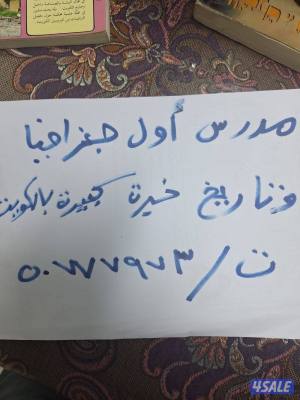 مدرس أول جغرافيا
وتاريخ خبرة كبيرة بالكويت
ت/٥٠٧٧٧٩٧٣
4SALE